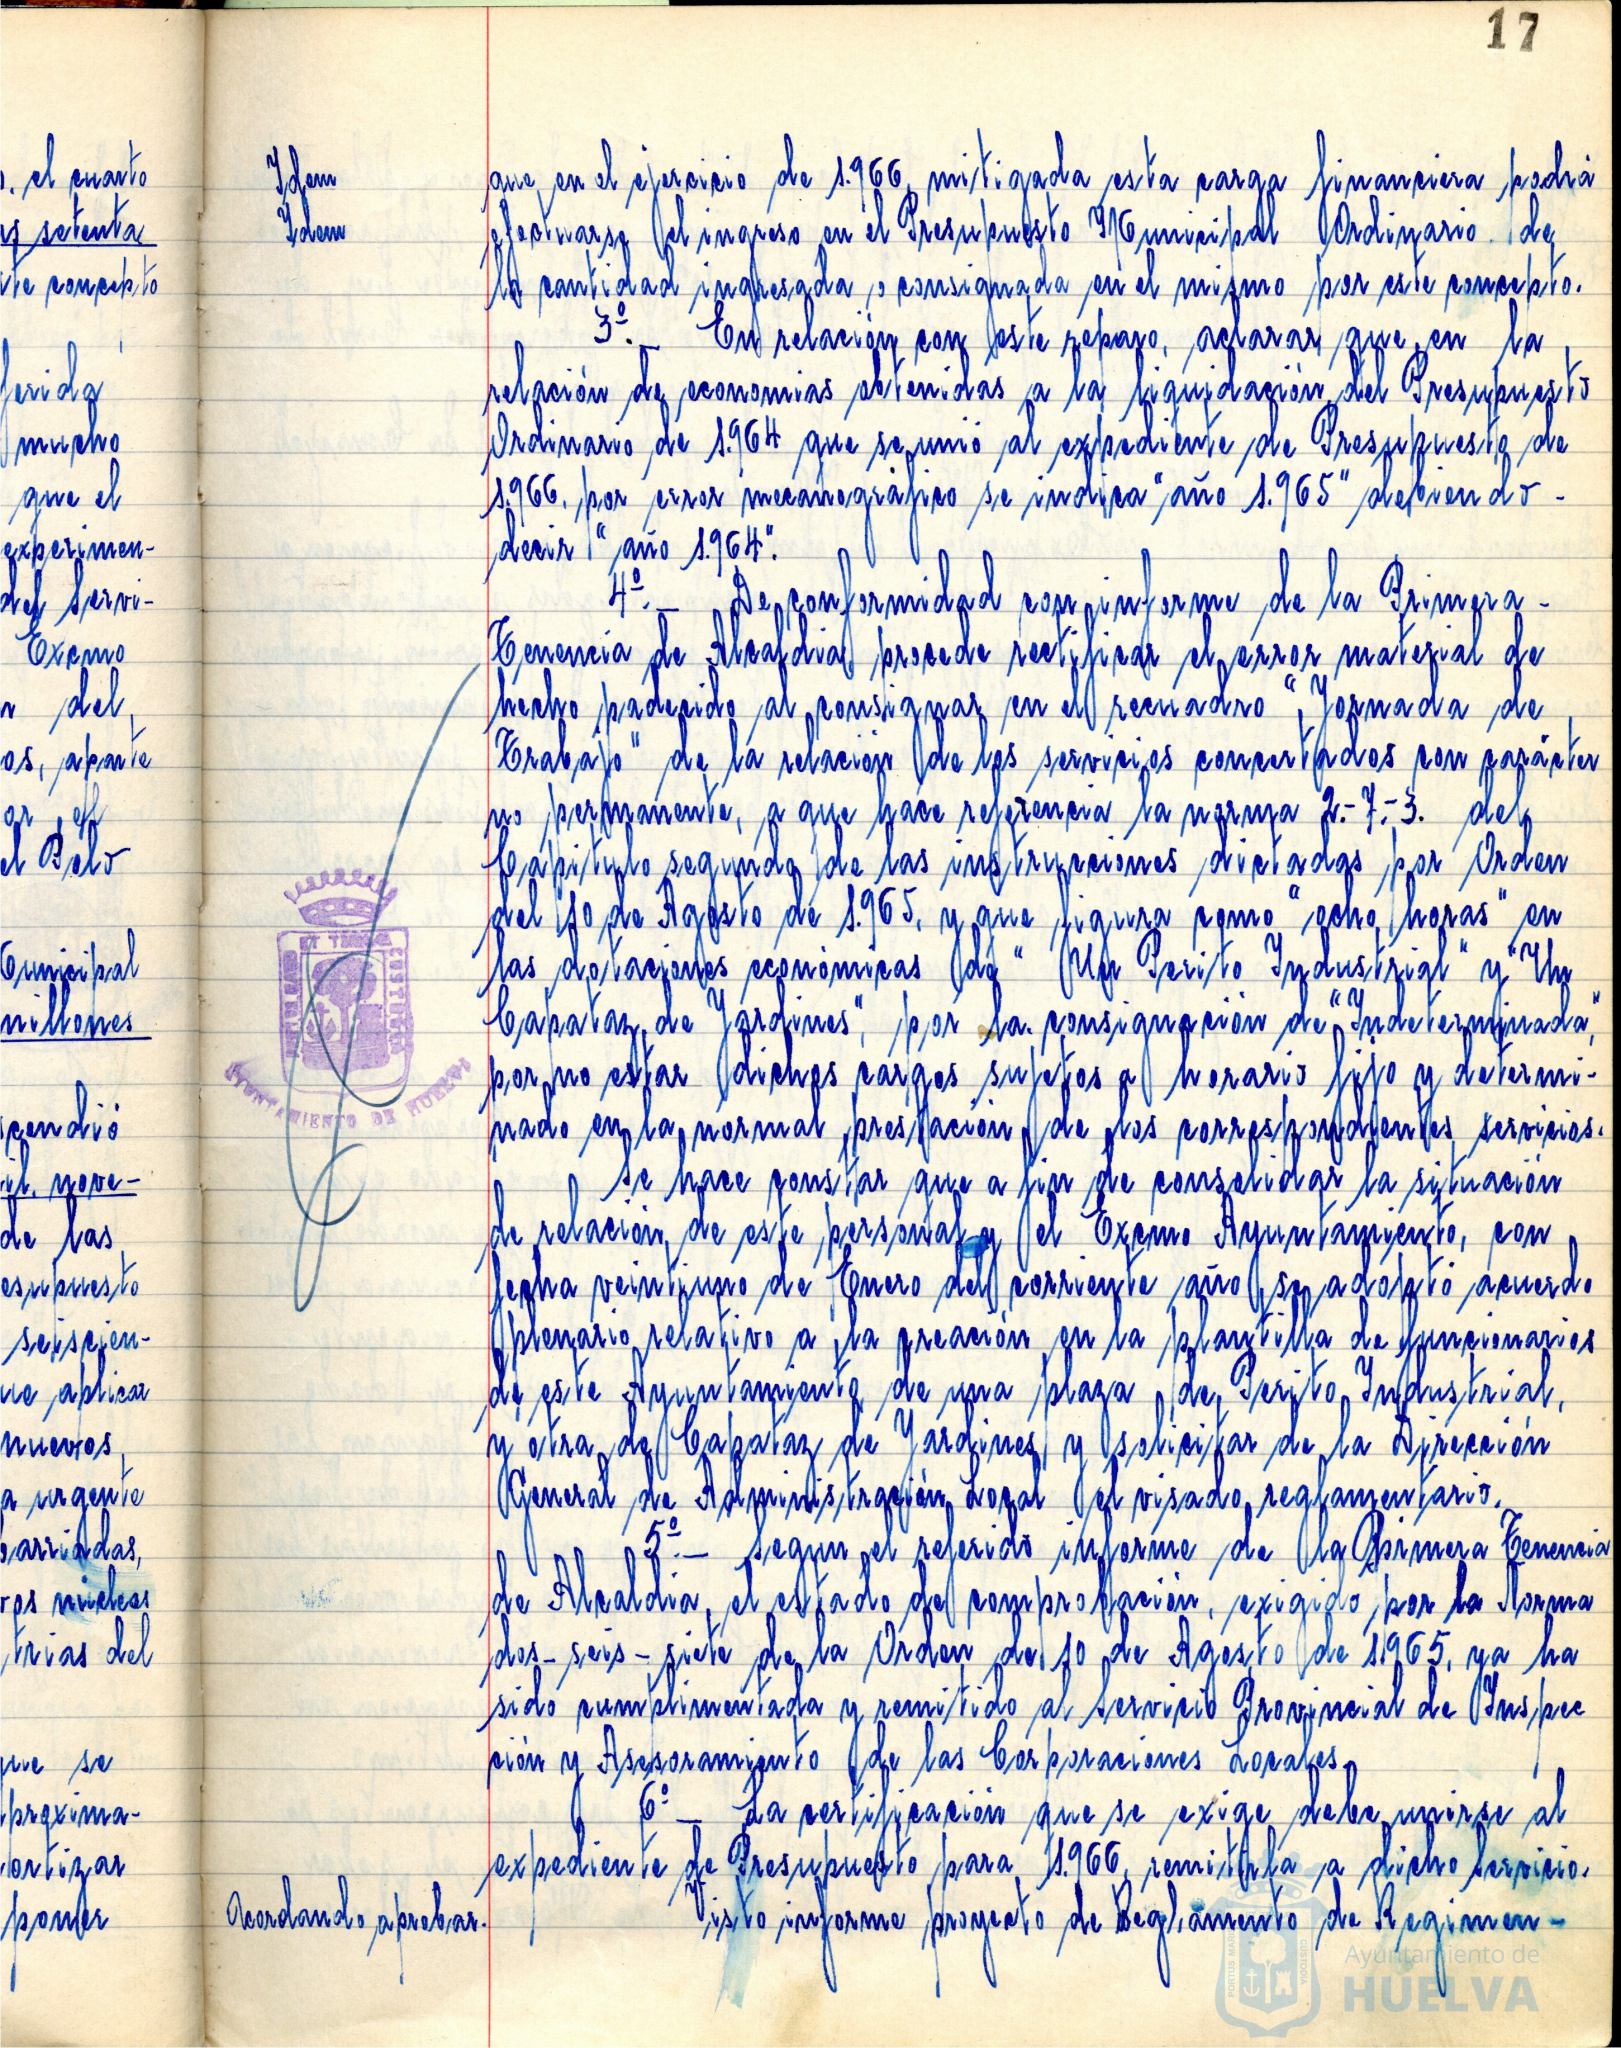 17
o. el cuarto
setenta
te concepto
ferida
mucho
que el
experimen-
del Servi-
Excmo
del,
os, aparte
or el
el Polo
Municipal
millones
scendió
il nove-
de las
esupuesto
seiscien-
ue aplicar
nuevos,
a urgente
barriadas,
vos nucleos
trias del
que se
proxima-
ortizar
poner
Idem
Idem
que en el ejercicio de 1.966, mitigada esta carga financiera podrá
efectuarse el ingreso en el Presupuesto Municipal Ordinario de
la cantidad ingresada, o consignada en el mismo por este concepto.
3º.- En relación con este reparo, aclarar que en la
relación de economias obtenidas a la liquidación del Presupuesto
Ordinario de 1.964 que se unió al expediente de Presupuesto de
1.966, por error mecanográfico se indica "año 1.965" debiendo -
decir "año 1.964".
4º.- De conformidad con informe de la Primera -
Tenencia de Alcaldia procede rectificar el error material de
hecho padecido al consignar en el recuadro "Jornada de
Trabajo" de la relación de los servicios concertados con carácter
no permanente, a que hace referencia la norma 2.-7.-3. del
Capitulo segundo de las instrucciones dictadas por Orden
del 10 de Agosto de 1.965, y que figura como "ocho horas" en
las dotaciones económicas de "Un Perito Industrial" y "Un
Capataz de Jardines", por la consignación de "Indeterminada",
por no estar dichos cargos sujetos a horario fijo y determi-
nado en la normal prestación de los correspondientes servicios.
Se hace constar que a fin de consolidar la situación
de relación de este personal y el Excmo Ayuntamiento, con
fecha veintiuno de Enero del corriente año se adoptó acuerdo
plenario relativo a la creación en la plantilla de funcionarios
de este Ayuntamiento de una plaza de Perito Industrial,
y otra de Capataz de Jardines y solicitar de la Dirección
General de Administración Local el visado reglamentario.
5º.- Segun el referido informe de la Primera Tenencia
de Alcaldia, el estado de comprobación, exigido por la Norma
dos-seis-siete de la Orden de 10 de Agosto de 1.965, ya ha
sido cumplimentada y remitido al Servicio Provincial de Inspec
ción y Asesoramiento de las Corporaciones Locales.
6º- La certificación que se exige debe unirse al
expediente de Presupuesto para 1.966, remitirla a dicho Servicio.
Acordando aprobar.
Visto informe proyecto de Reglamento de Regimen-
AYUNTAMIENTO DE HUELVA
Ayuntamiento de
HUELVA